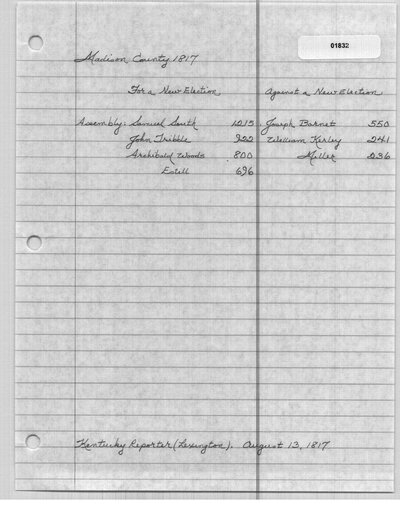 01832
Madison County 1817
For a New Election Against a New Election
Assembly: Samuel South 1215 Joseph Barnet 550
John Tribble 922 William Kerley 241
Archibald Woods 800 Miller 236
Estill 696
Kentucky Reporter (Lexington). August 13, 1817